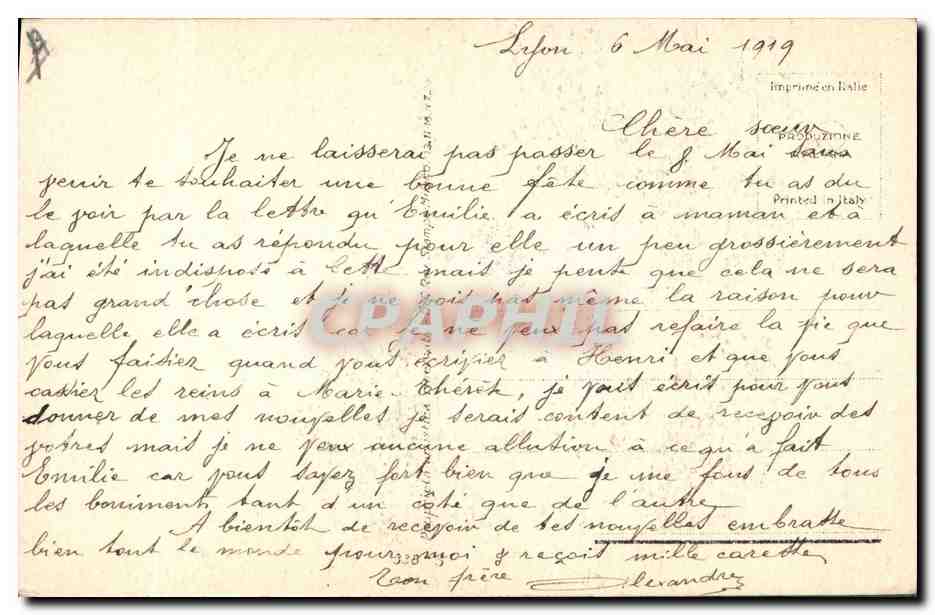 Lyon 6 Mai 1919
Imprimé en Italie
Chère sœur
PRODUZIONE
Je ne laisserai pas passer le 8 Mai sans
venir te souhaiter une bonne fête comme tu as du
Printed in Italy
le voir par la lettre qu'Emilie a écris à maman et à
laquelle tu as répondu pour elle un peu grossièrement
j'ai été indisposé à mais je pense que cela ne sera
pas grand'chose et je ne vois pas même la raison pour
laquelle elle a écris car je ne veux pas refaire la vie que
CPAPHIL
vous faisiez quand vous écriviez à Henri et que vous
cassiez les reins à Marie-Thérèse, je vous écris pour vous
donner de mes nouvelles je serais content de recevoir des
votres mais je ne veux aucune allution à ce qu'a fait
Emilie car vous savez fort bien que je me fous de tous
les boniments tant d'un coté que de l'autre
A bientôt de recevoir de tes nouvelles embrasse
bien tout le monde pour moi & reçois mille caresses
Ton frère Alexandre